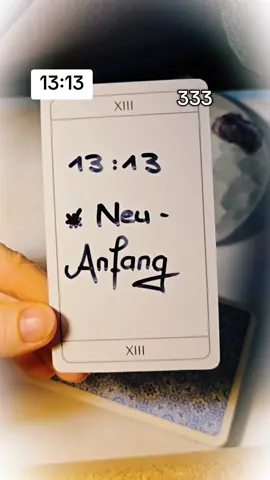 13:13
XIII
333
13:13
* Neu-
Anfang
XIII